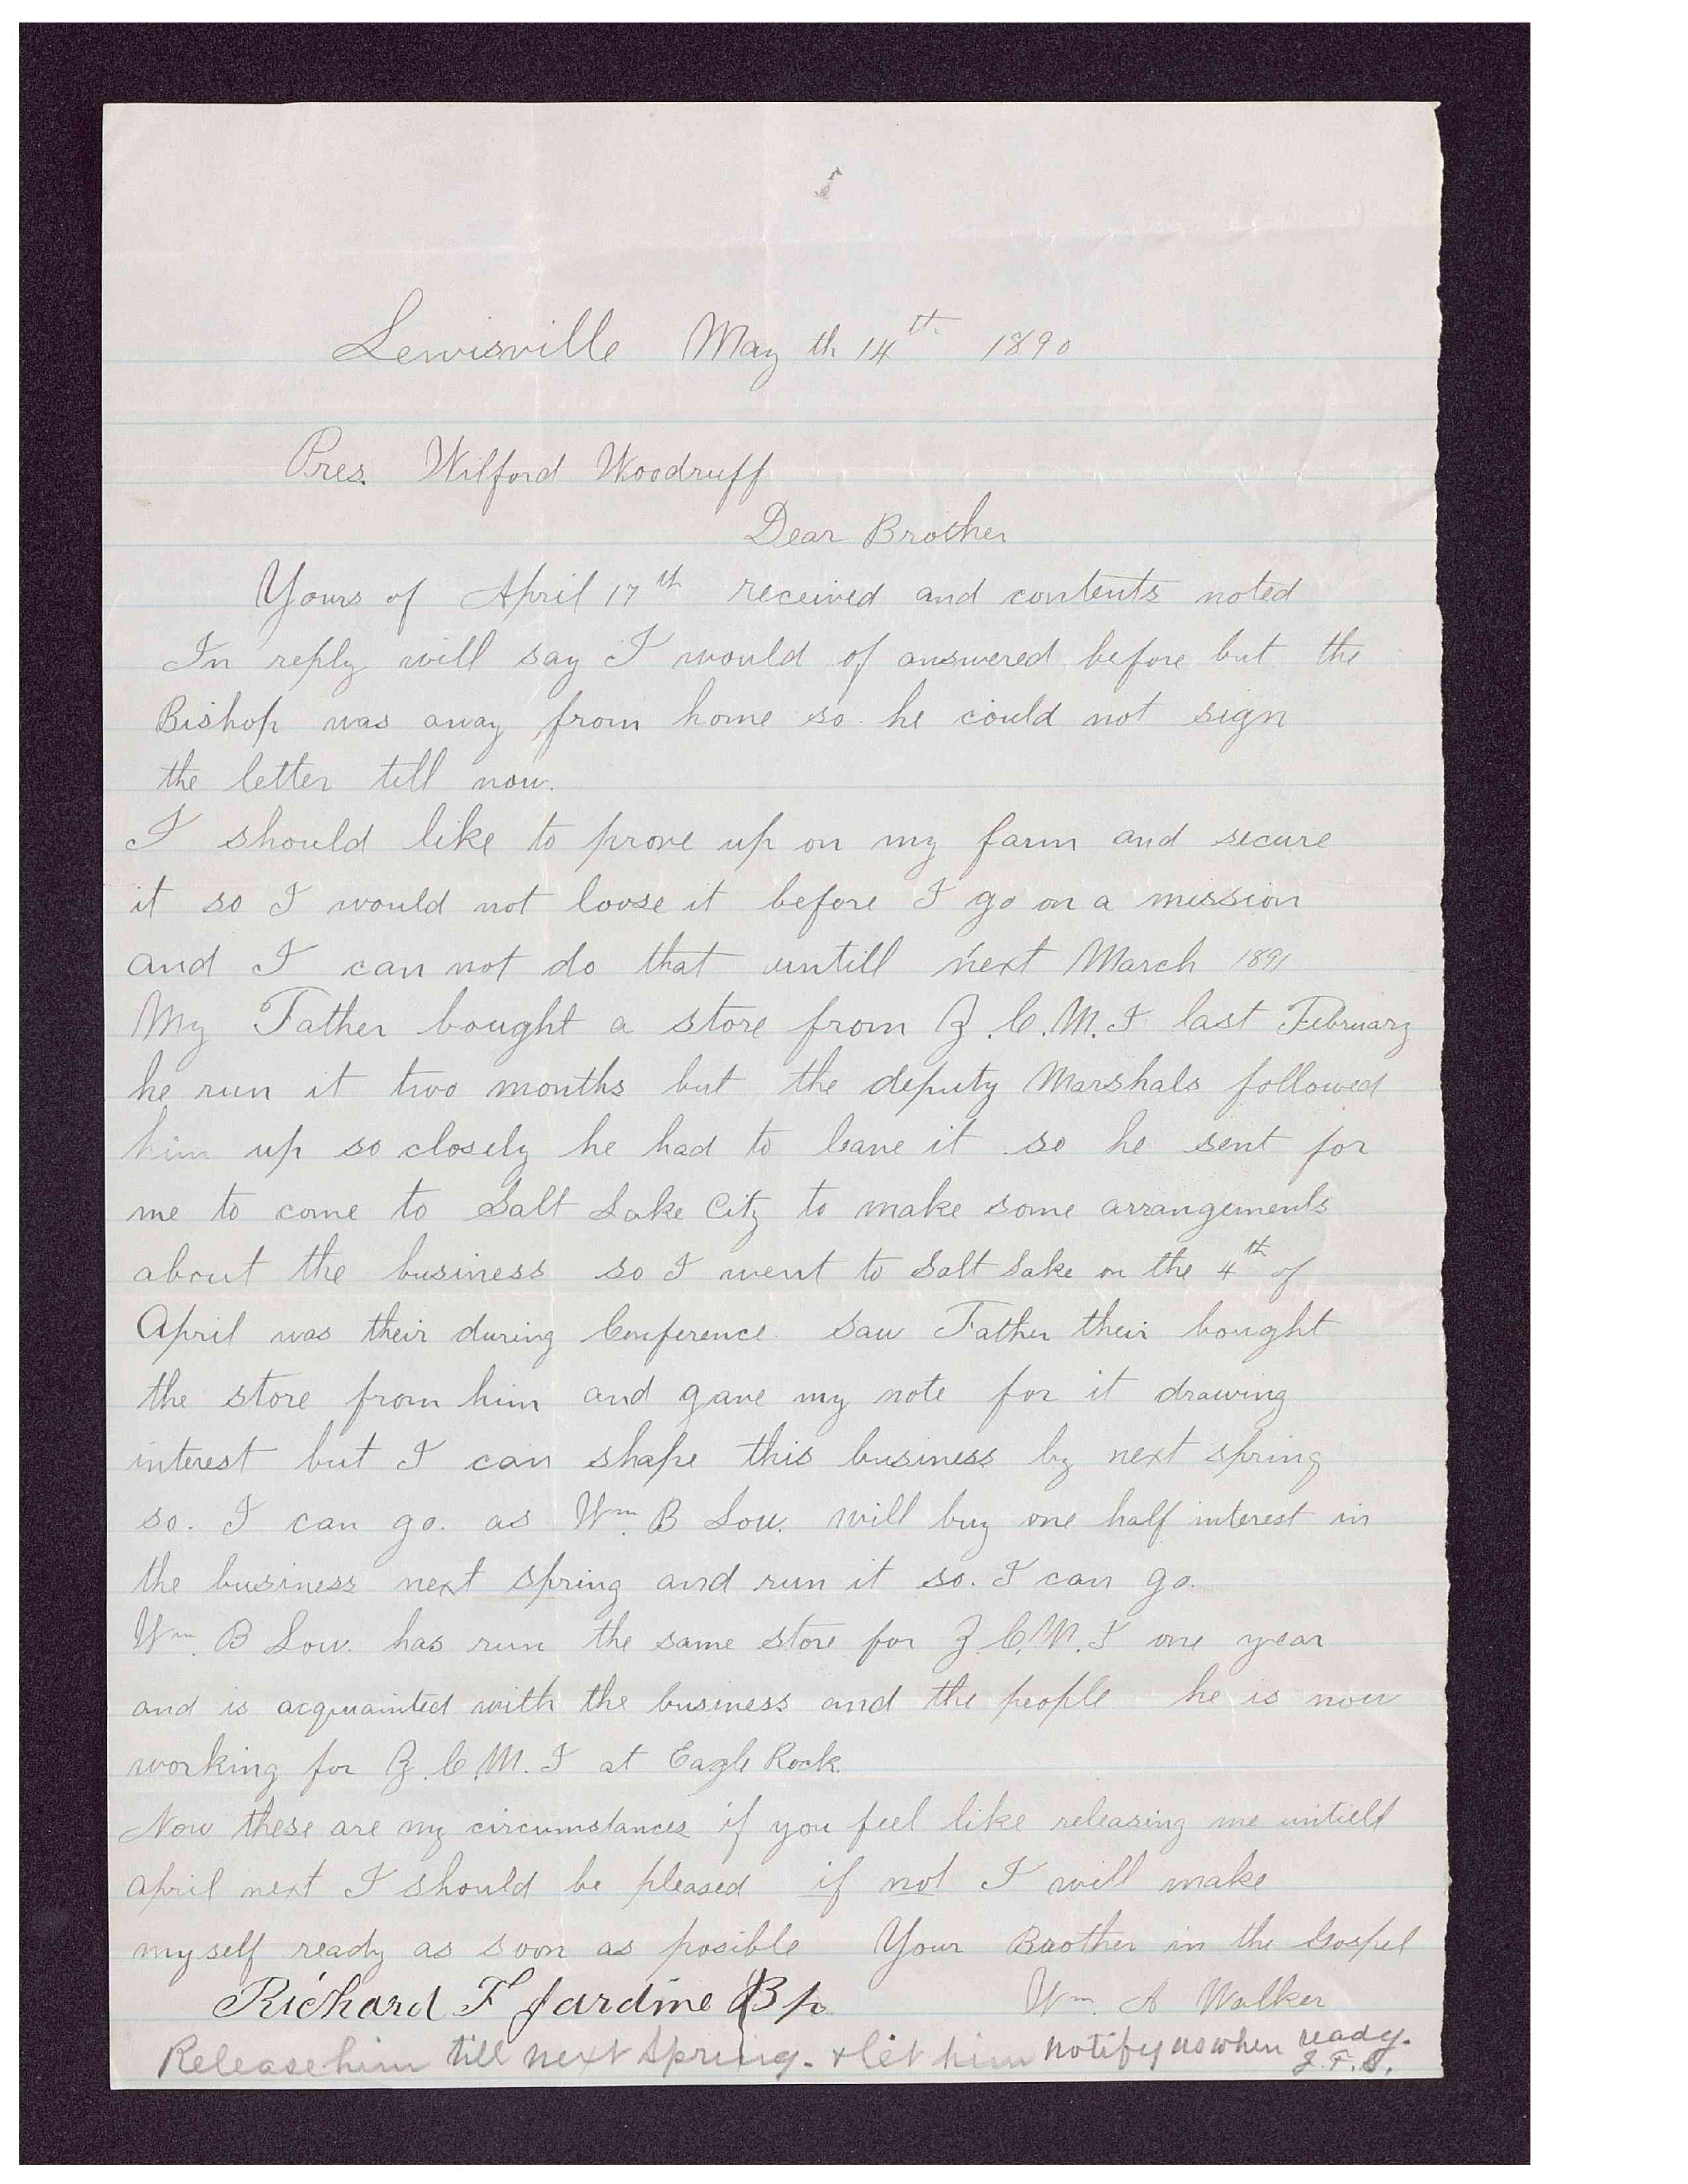 Lewisville May th 14th 1890
Pres. Wilford Woodruff
Dear Brother
Yours of April 17th received and contents noted
In reply will say I would of answered before but the
Bishop was away from home so he could not sign
the letter till now.
I should like to prove up on my farm and secure
it so I would not loose it before I go on a mission
and I can not do that untill next March 1891
My Father bought a store from Z.C.M.I last February
he run it two months but the deputy Marshals followed
him up so closely he had to leave it so he sent for
me to come to Salt Lake City to make some arrangements
about the business so I went to Salt Lake on the 4th of
April was their during Conference. Saw Father their bought
the store from him and gave my note for it drawing
interest but I can shape this business by next spring
so. I can go. as Wm. B Low. will buy one half interest in
the business next spring and run it so. I can go.
Wm. B Low. has run the same store for Z.C.M.I one year
and is acquainted with the business and the people he is now
working for Z.C.M.I at Eagle Rock.
Now these are my circumstances if you feel like releasing me untill
April next I should be pleased if not I will make
myself ready as soon as posible Your Brother in the Gospel
Richard F Jardine Bp Wm. A Walker
Release him till next Spring. & let him notify us when ready.
J.F.S.